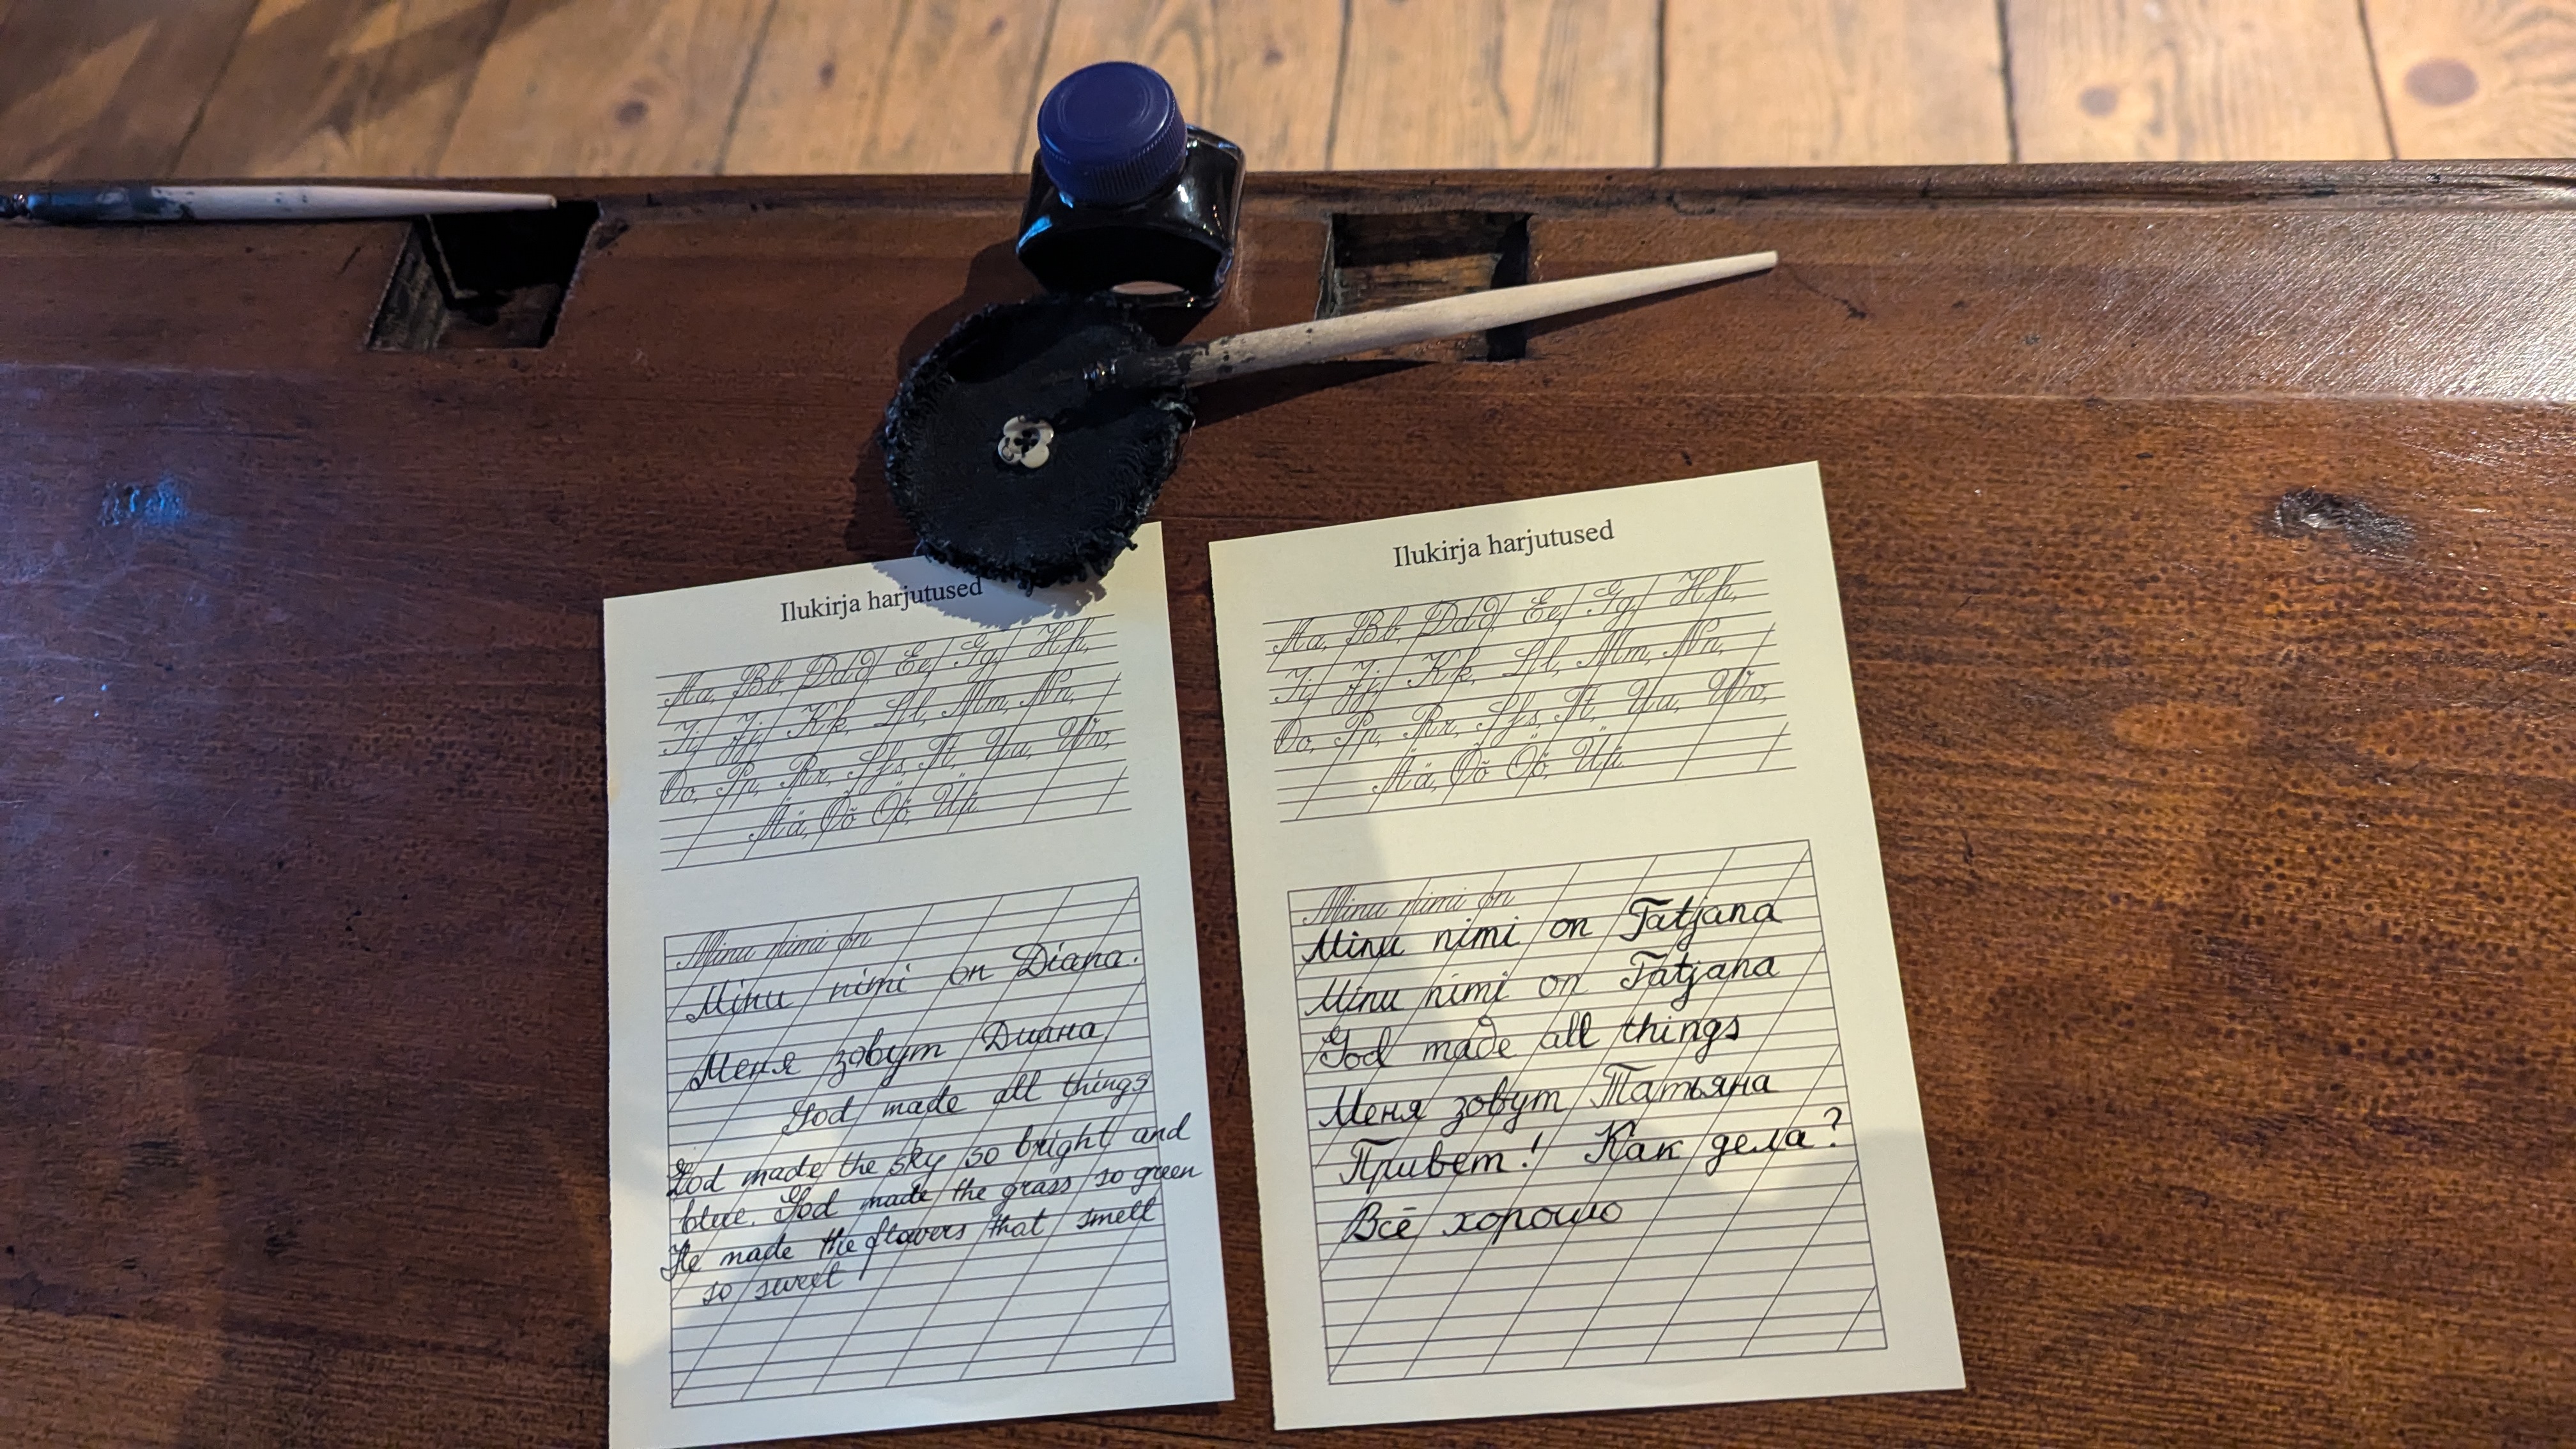 Ilukirja harjutused
Aa, Bb, Ddd, Ee, Gg, Hh,
Ii, Jj, Kk, Ll, Mm, Nn,
Oo, Pp, Rr, Sſs, Tt, Uu, Vv,
Ää, Õõ, Öö, Üü
Minu nimi on
Minu nimi on Diana.
Меня зовут Диана
God made all things
God made the sky so bright and
blue. God made the grass so green
He made the flowers that smell
so sweet
Ilukirja harjutused
Aa, Bb, Ddd, Ee, Gg, Hh,
Ii, Jj, Kk, Ll, Mm, Nn,
Oo, Pp, Rr, Sſs, Tt, Uu, Vv,
Ää, Õõ, Öö, Üü
Minu nimi on
Minu nimi on Tatjana
Minu nimi on Tatjana
God made all things
Меня зовут Татьяна
Привет! Как дела?
Всё хорошо